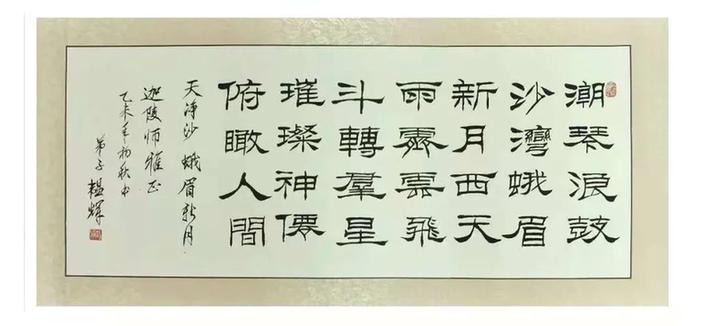 潮琴浪鼓
沙灣蛾眉
新月西天
雨霽雲飛
斗轉羣星
璀璨神僊
俯瞰人間
天淨沙 蛾眉新月
迦陵师雅正
乙未年初秋
弟子楊輝